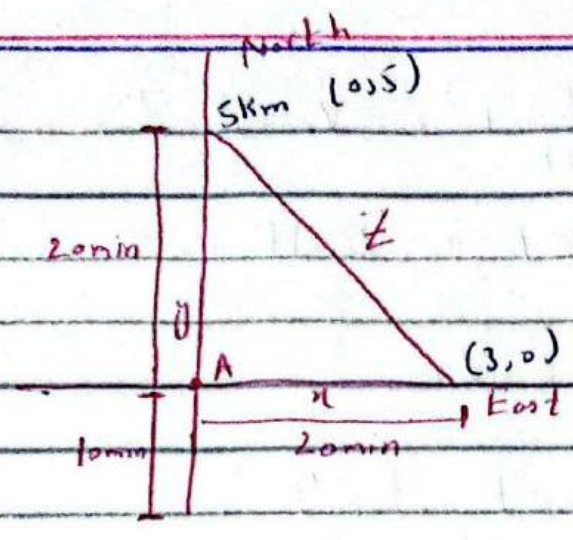 North
5km (0,5)
20min
z
y
A
(3,0)
x
East
10min
20min